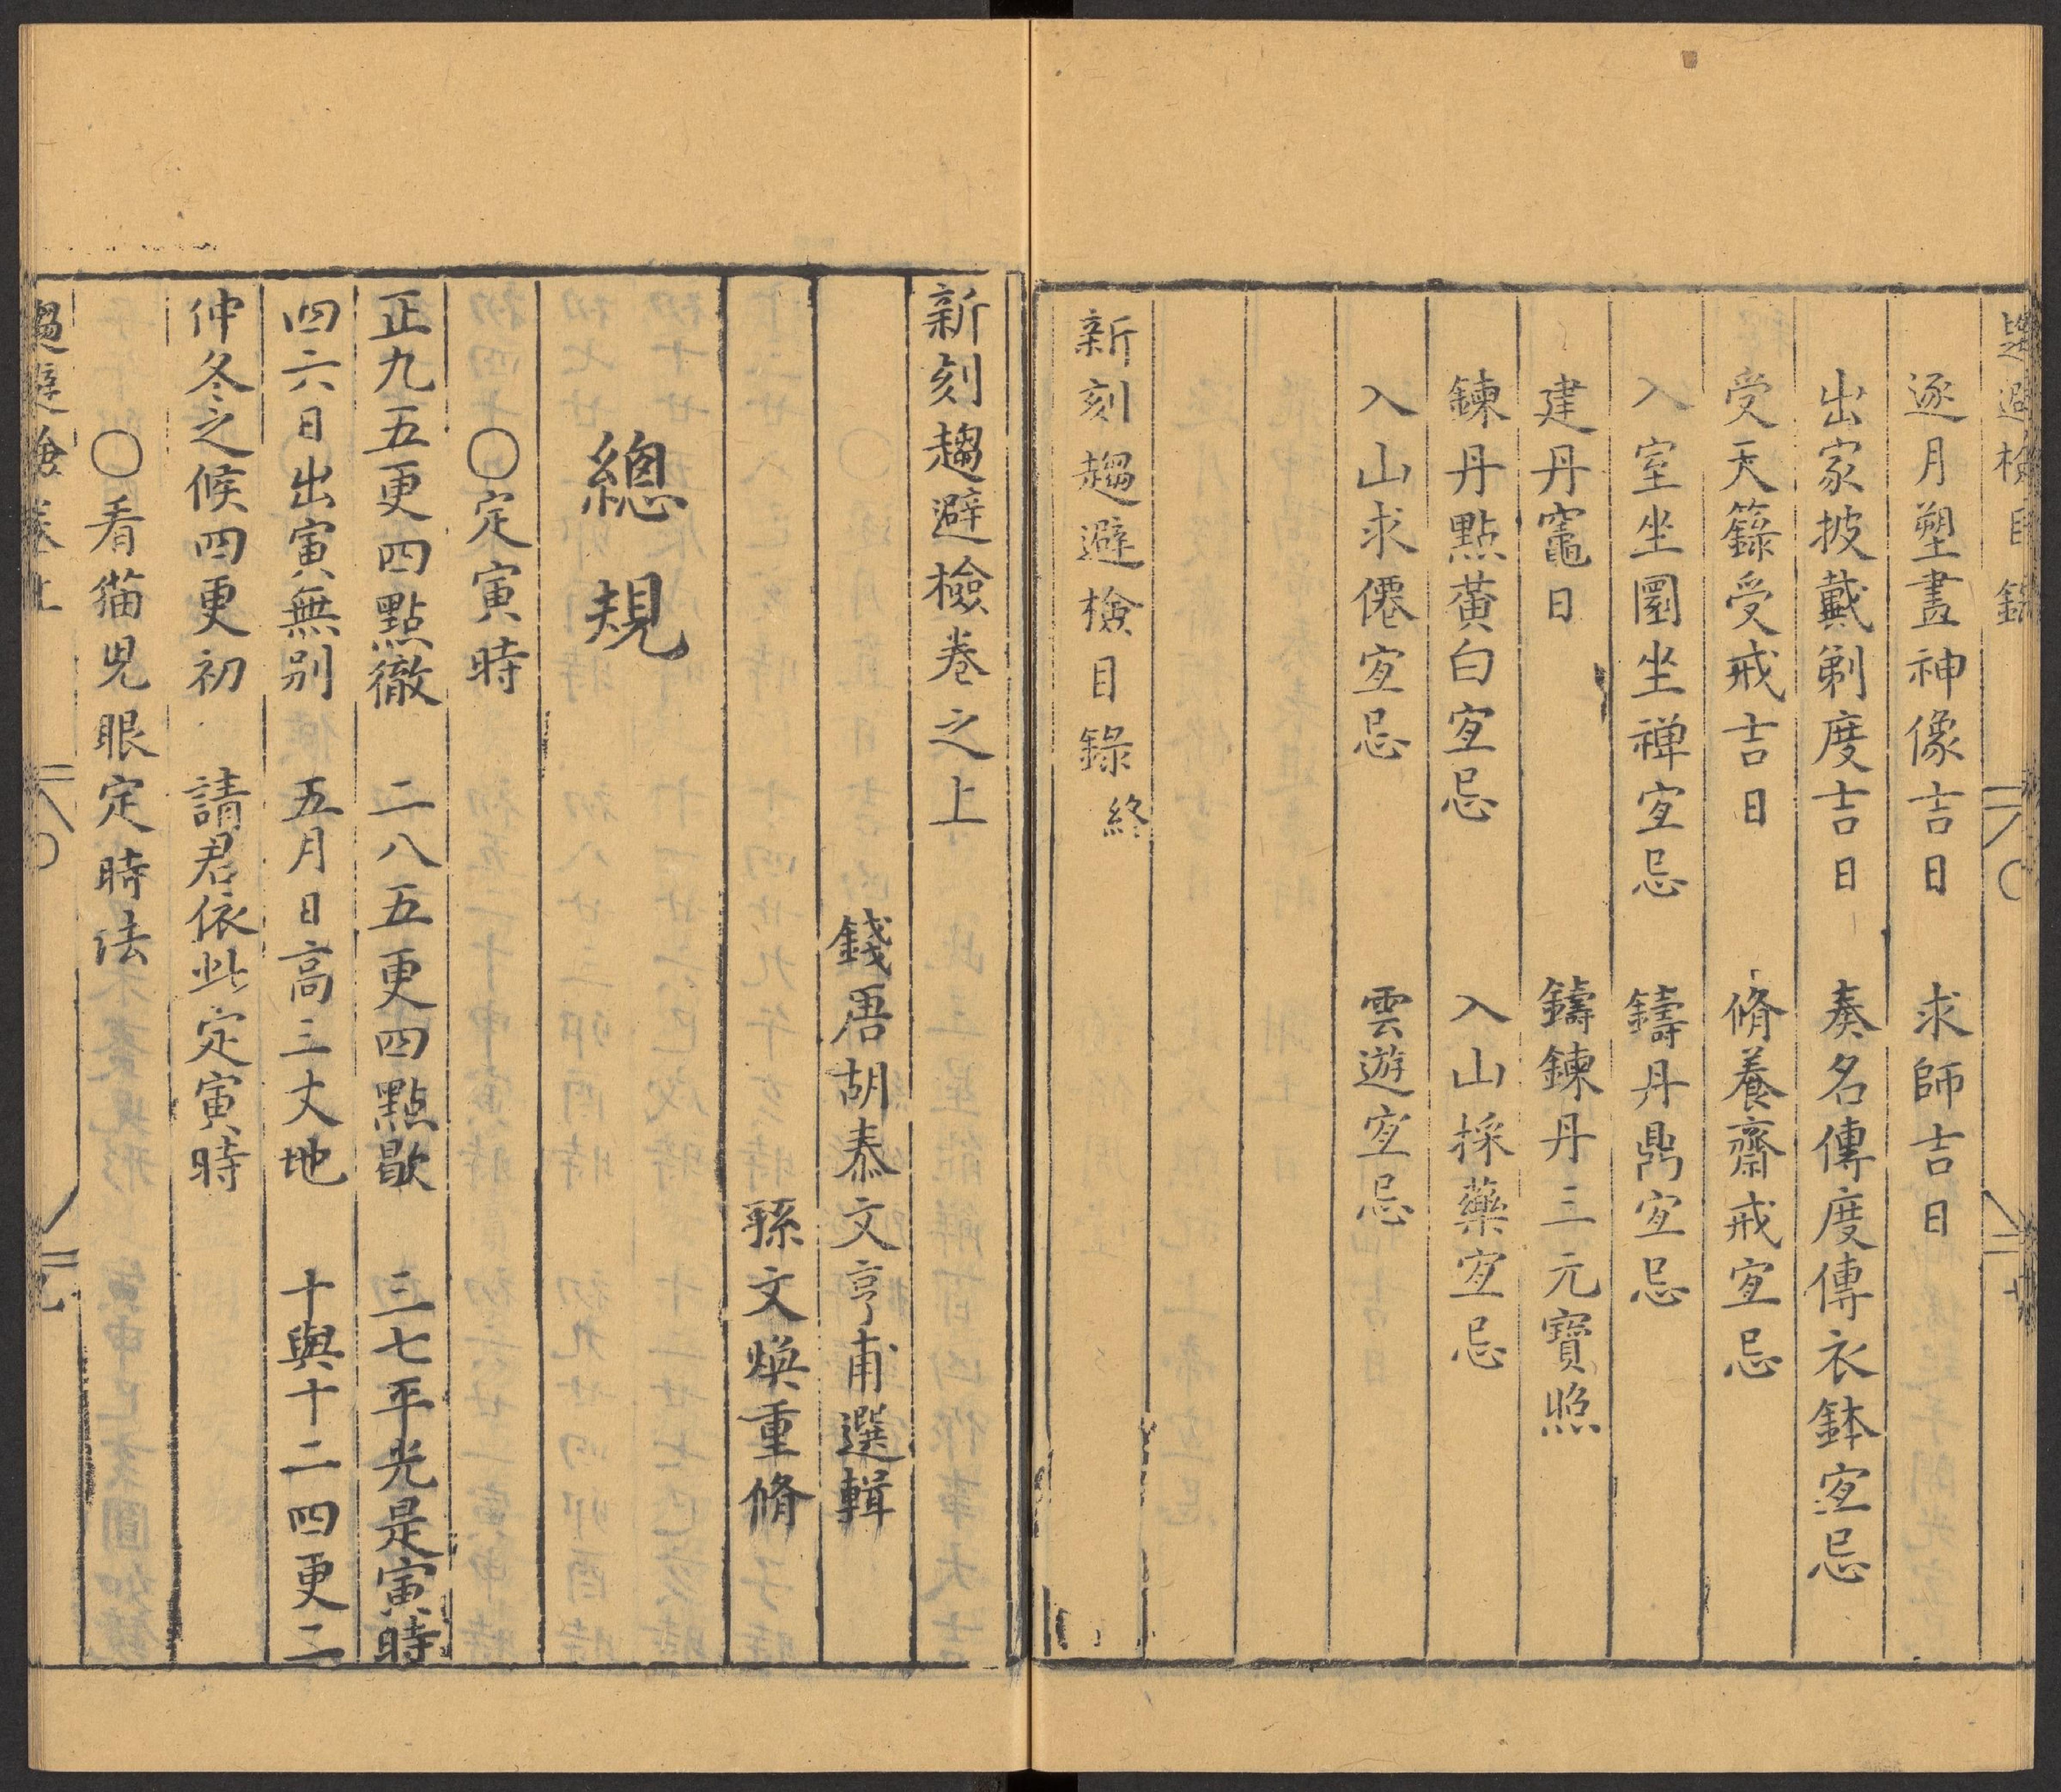 趨避檢目錄
逐月塑畫神像吉日　求師吉日
出家披戴剃度吉日　奏名傳度傳衣鉢宜忌
受天籙受戒吉日　脩養齋戒宜忌
入室坐圜坐禅宜忌　鑄丹鼎宜忌
建丹竈日　鑄鍊丹三元寶照
鍊丹點黃白宜忌　入山採藥宜忌
入山求僊宜忌　雲遊宜忌
新刻趨避檢目錄終
新刻趨避檢卷之上
錢唐胡泰文亨甫選輯
孫文煥重脩
總規
○定寅時
正九五更四點徹　二八五更四點歇　三七平光是寅時
四六日出寅無别　五月日高三丈地　十與十二四更二
仲冬之候四更初　請君依此定寅時
○看猫兒眼定時法
趨避檢卷上